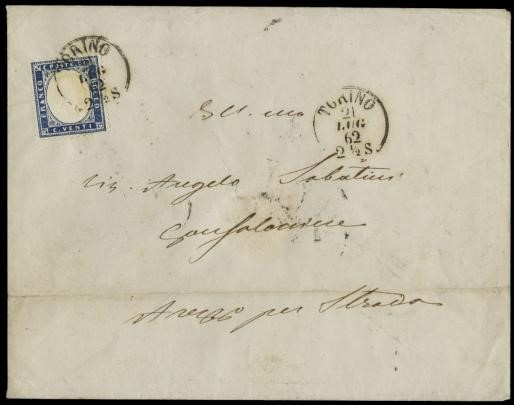 TORINO
FRANCO
C. VENTI
TORINO
21
LUG
62
2 ½ S
Ill. mo
Sig. Angelo Sabatini
Gonfaloniere
Arezzo per Strada